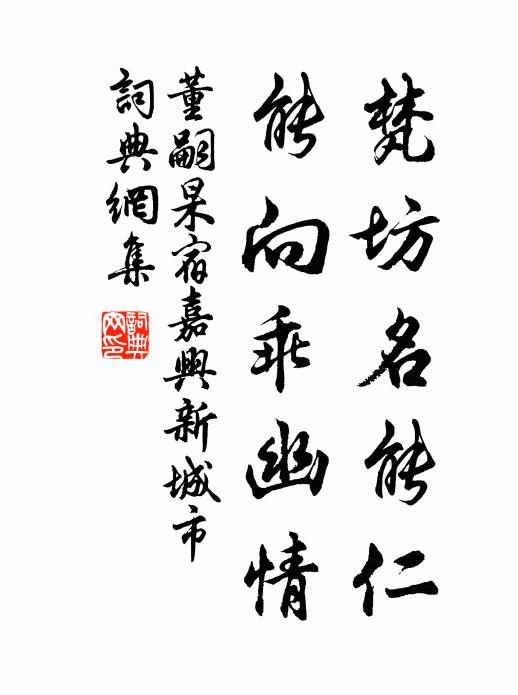 梵坊名能仁
能向乖幽情
董嗣杲宿嘉興新城市
詞典網集
詞典網印